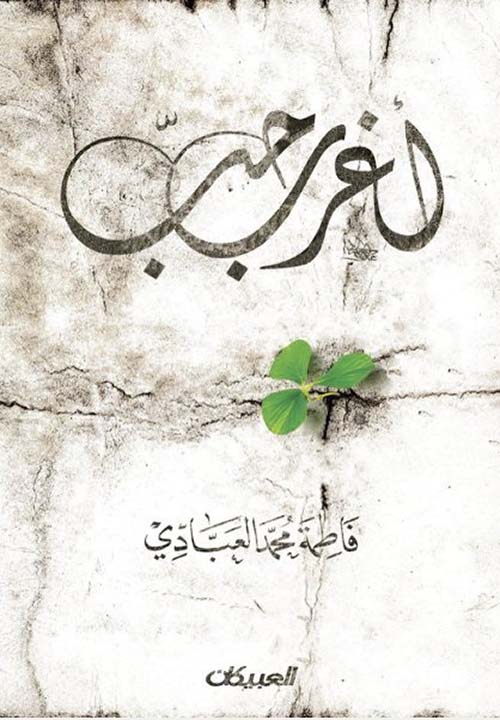 أغرب حبّ
فَاطِمَة مُحمَّد العَبَّادِي
العبيكان